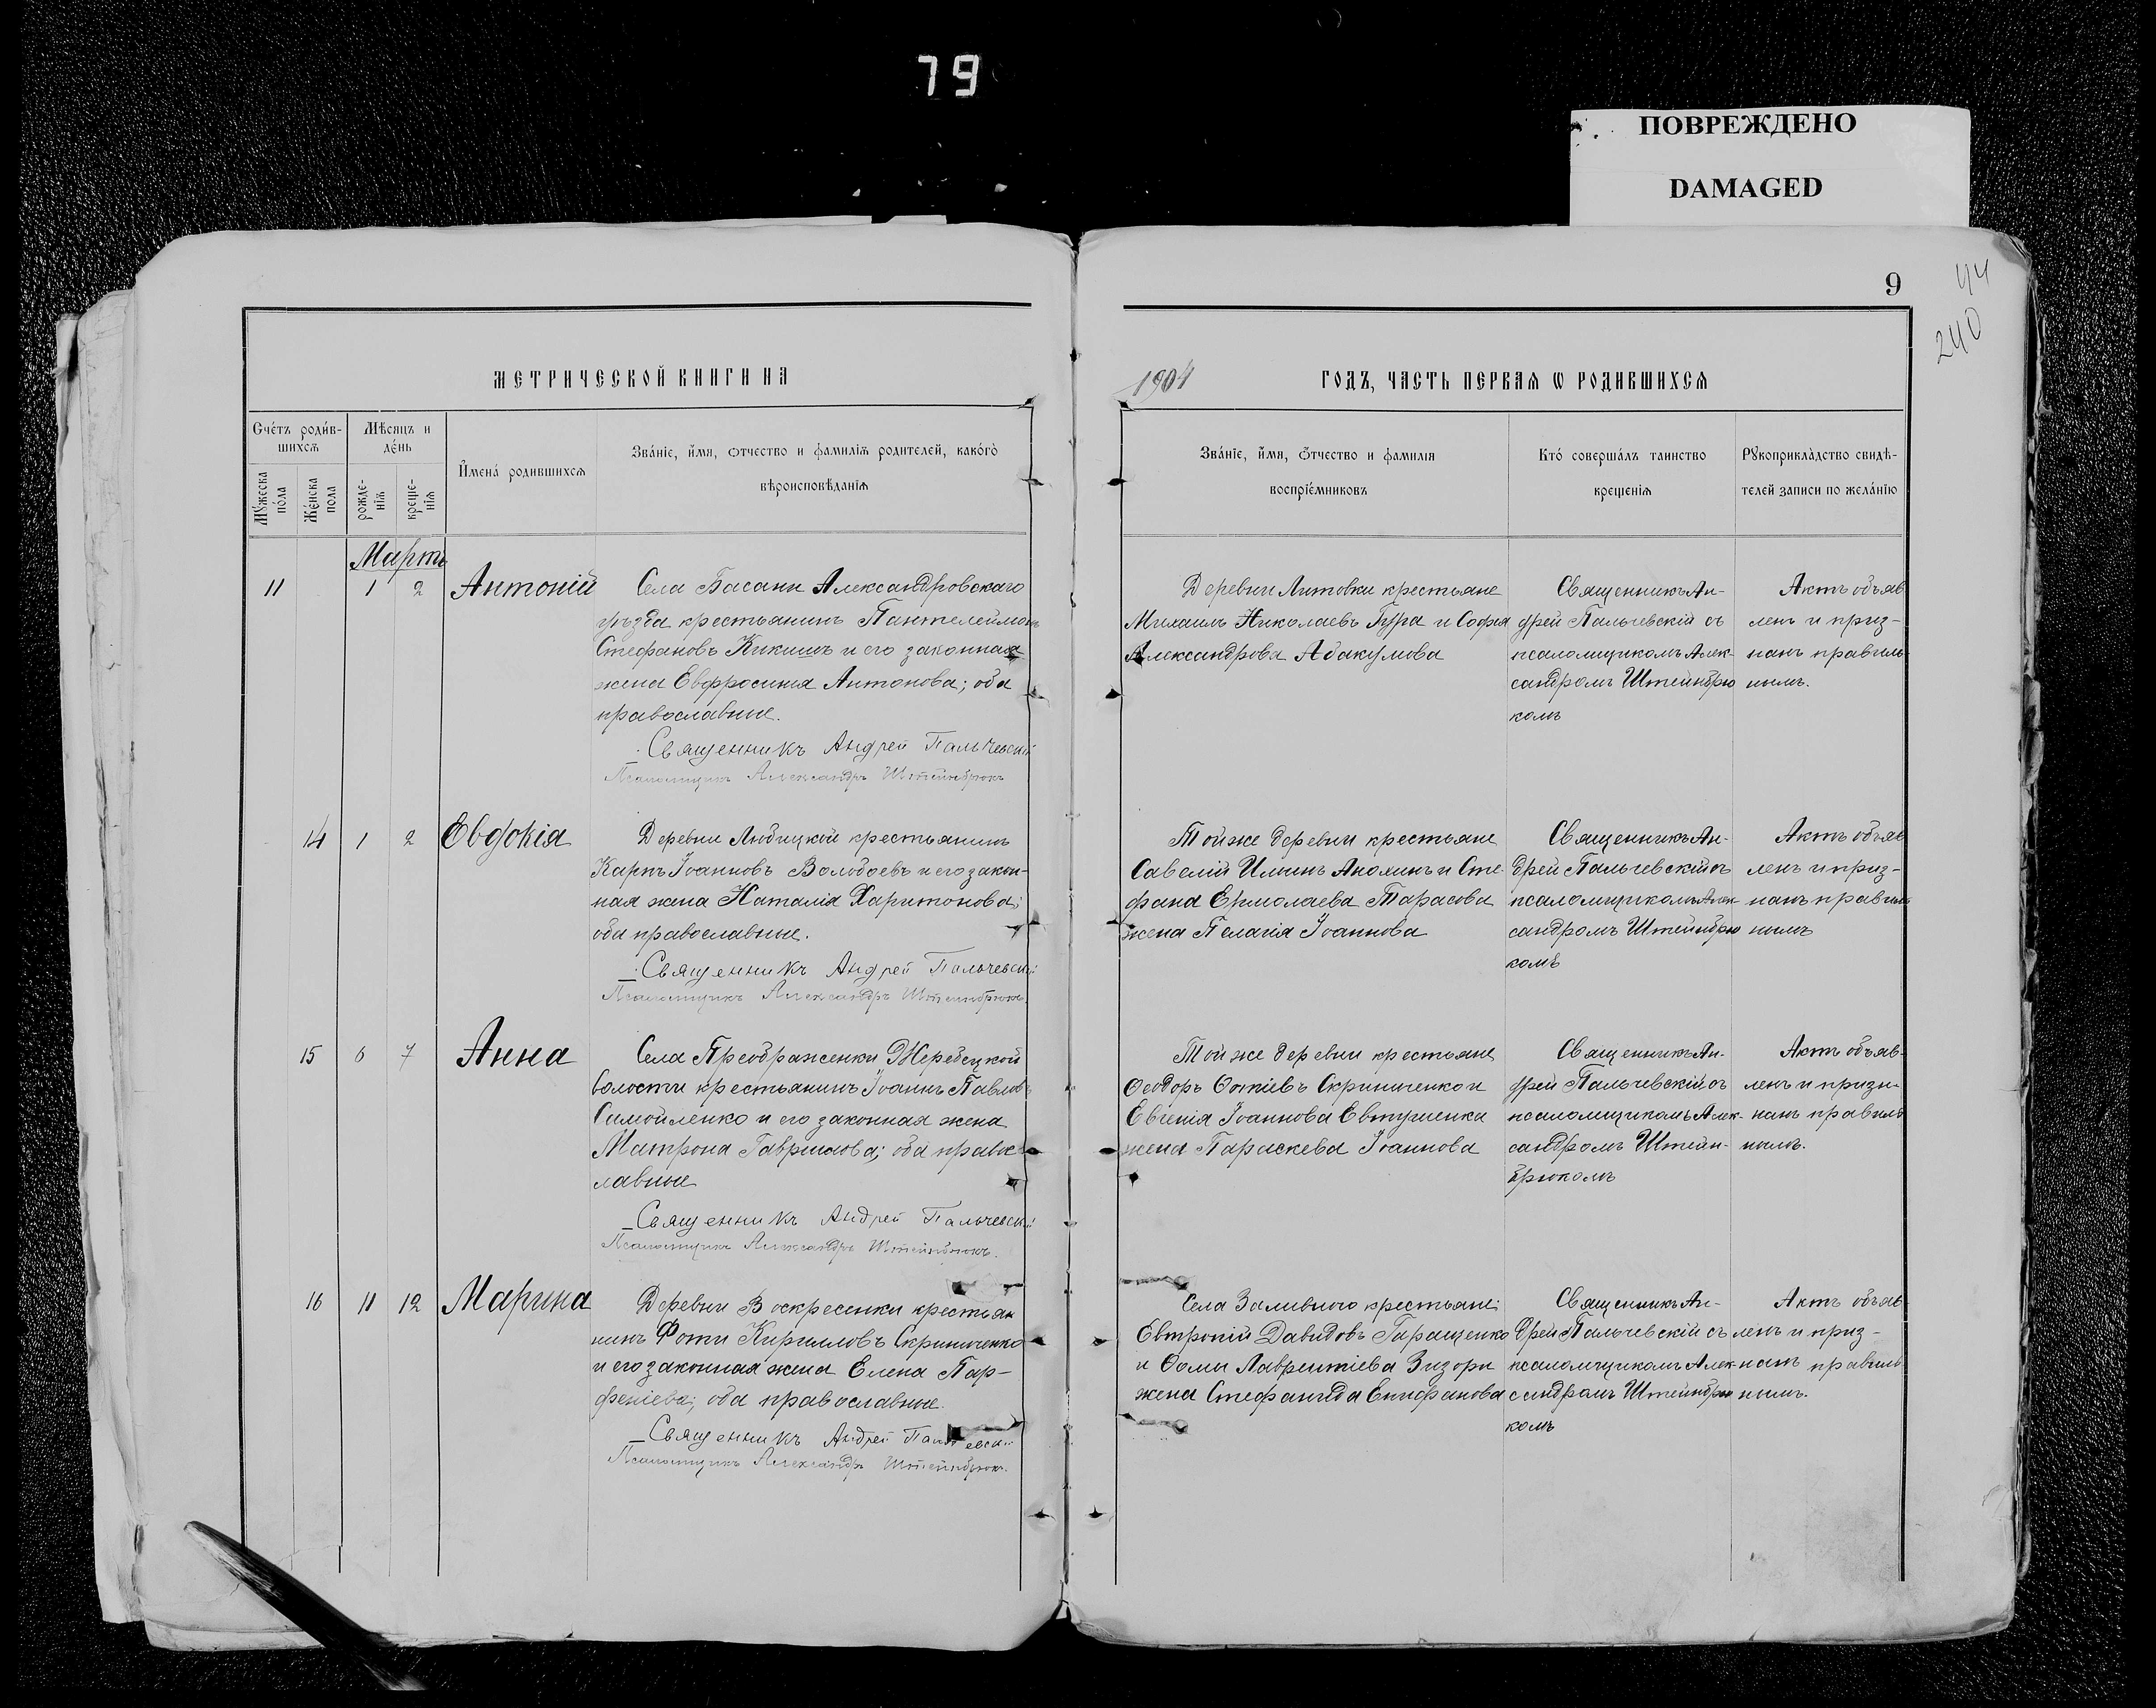 79
ПОВРЕЖДЕНО
DAMAGED
9
44
240
МЕТРИЧЕСКОЙ КНИГИ НА
1904
ГОДЪ, ЧАСТЬ ПЕРВАѦ Ѡ РОДИВШИХСѦ
Счетъ родив-
шихсѧ
Мужеска пола
Женска пола
Мѣсяцъ и день
рожде-нїѧ
креще-нїѧ
Имена родившихсѧ
Званїе, имя, отчество и фамилїѧ родителей, какого
вѣроисповѣданїѧ
Званїе, имя, отчество и фамилїя
воспрїемниковъ
Кто совершалъ таинство
крещенїѧ
Рукоприкладство свидѣ-
телей записи по желанїю
Мартъ
11 1 2 Антоній
Села Басани Александровскаго
уѣзда крестьянинъ Пантелеймонъ
Стефановъ Кикишъ и его законная
жена Евфросинія Антонова; оба
православные.
Священникъ Андрей Пальчевскій
Псаломщикъ Александръ Штейнбрюкъ
Деревни Литовки крестьяне
Михаилъ Николаевъ Гура и Софія
Александрова Абакумова
Священникъ Ан-
дрей Пальчевскій съ
псаломщикомъ Алек-
сандромъ Штейнбрю
комъ
Актъ объяв
ленъ и приз-
нанъ правиль
нымъ.
14 1 2 Евдокія
Деревни Любицкой крестьянинъ
Карпъ Іоанновъ Володоевъ и его закон-
ная жена Наталія Харитонова;
оба православные.
Священникъ Андрей Пальчевскій
Псаломщикъ Александръ Штейнбрюкъ
Той же деревни крестьяне
Савелій Ильинъ Анохинъ и Сте-
фана Ермолаева Тарасова
жена Пелагія Іоаннова
Священникъ Ан-
дрей Пальчевскій съ
псаломщикомъ Алек-
сандромъ Штейнбрю
комъ
Актъ объяв
ленъ и приз-
нанъ правиль
нымъ
15 6 7 Анна
Села Преображенки Жеребецкой
волости крестьянинъ Іоаннъ Павловъ
Самойленко и его законная жена
Матрона Гавриилова; оба правос-
лавные
Священникъ Андрей Пальчевскій
Псаломщикъ Александръ Штейнбрюкъ.
Той же деревни крестьяне
Ѳеодоръ Фотіевъ Скриниченко и
Евгенія Іоаннова Евтушенка
жена Параскева Іоаннова
Священникъ Ан-
дрей Пальчевскій съ
псаломщикомъ Алек-
сандромъ Штейн-
брюкомъ
Актъ объяв-
ленъ и призн-
нанъ правиль
нымъ.
16 11 12 Марина
Деревни Воскресенки крестьян
нинъ Фоти Кирилловъ Скриниченко
и его законная жена Елена Пар-
феніева; оба православные.
Священникъ Андрей Пальчевскій
Псаломщикъ Александръ Штейнбрюкъ.
Села Заливного крестьяне:
Евтропій Давидовъ Таращенко
и Ѳомы Лаврентіева Зизори
жена Стефанида Епифанова
Священникъ Ан-
дрей Пальчевскій съ
псаломщикомъ Алек
сандромъ Штейнбрю
комъ
Актъ объяв-
ленъ и приз-
нанъ правиль
нымъ.